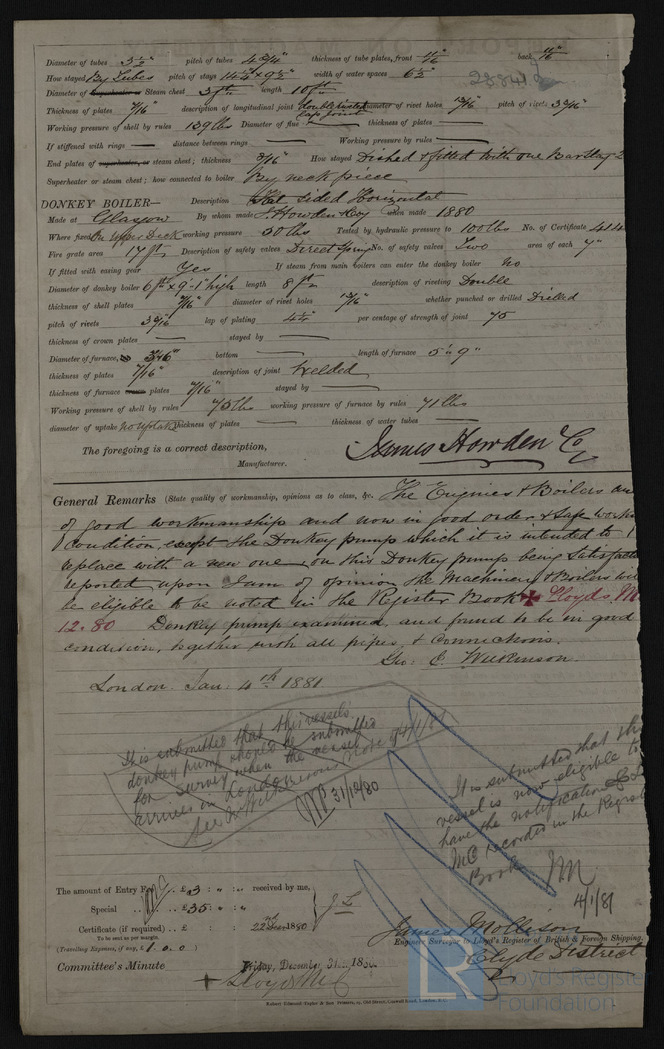 Diameter of tubes 3½" pitch of tubes 4¾" thickness of tube plates, front 11/16" back 11/16"
How stayed By Tubes pitch of stays 14¼ x 9½" width of water spaces 6½"
Diameter of Superheater or Steam chest 3 ft length 10 ft
Thickness of plates 7/16" description of longitudinal joint double riveted lap joint diameter of rivet holes 13/16" pitch of rivets
Working pressure of shell by rules 139 lbs Diameter of flue — thickness of plates —
If stiffened with rings — distance between rings — Working pressure by rules —
End plates of superheater, or steam chest; thickness How stayed Dished & fitted with one Bar Stay
Superheater or steam chest; how connected to boiler By neck piece
DONKEY BOILER— Description Flat Sided Horizontal
Made at Glasgow By whom made J. Howden & Coy when made 1880
Where fixed On Upper Deck working pressure 50 lbs Tested by hydraulic pressure to 100 lbs No. of Certificate
Fire grate area 17 ft Description of safety valves Direct Spring No. of safety valves Two area of each 7"
If fitted with easing gear Yes If steam from main boilers can enter the donkey boiler No
Diameter of donkey boiler 6 ft x 9'.1" high length 8 ft description of riveting Double
thickness of shell plates 7/16" diameter of rivet holes 13/16" whether punched or drilled Drilled
pitch of rivets lap of plating 4¼" per centage of strength of joint 75
thickness of crown plates — stayed by —
Diameter of furnace, bottom — length of furnace 5'.9"
thickness of plates 7/16" description of joint Welded
thickness of furnace plates 7/16" stayed by —
Working pressure of shell by rules 75 lbs working pressure of furnace by rules 71 lbs
diameter of uptake no uptake thickness of plates — thickness of water tubes —
The foregoing is a correct description,
James Howden & Co
Manufacturer.
General Remarks (State quality of workmanship, opinions as to class, &c. The Engines & Boilers are
of good workmanship and now in good order & safe working
condition, except the Donkey pump which it is intended to
replace with a new one, on this Donkey pump being satisfac
reported upon I am of opinion the Machinery & Boilers will
be eligible to be noted in the Register Book ✠ Lloyds M
12.80 Donkey pump examined, and found to be in good
condition, together with all pipes, & Connections.
Geo: C. Wilkinson.
London. Jan: 4th 1881
It is submitted that this vessels
donkey pump should be submitted
for survey when the vessel
arrives in London
See Mr Wilkinsons note of 4/1/81
31/12/80
It is submitted that this
vessel is now eligible to
have the notification
MC recorded in the Register
Book
4/1/81
The amount of Entry Fee .. £ 3 : " : " received by me,
Special .. £ 35 : " : "
Certificate (if required) .. £ 22nd Dec 1880
To be sent as per margin.
(Travelling Expenses, if any, £ 1.0.0)
James Mollison
Engineer Surveyor to Lloyd's Register of British & Foreign Shipping.
Clyde District
Committee's Minute Friday, December 31st 1880.
+ Lloyds MC
LR Lloyd's Register
Foundation